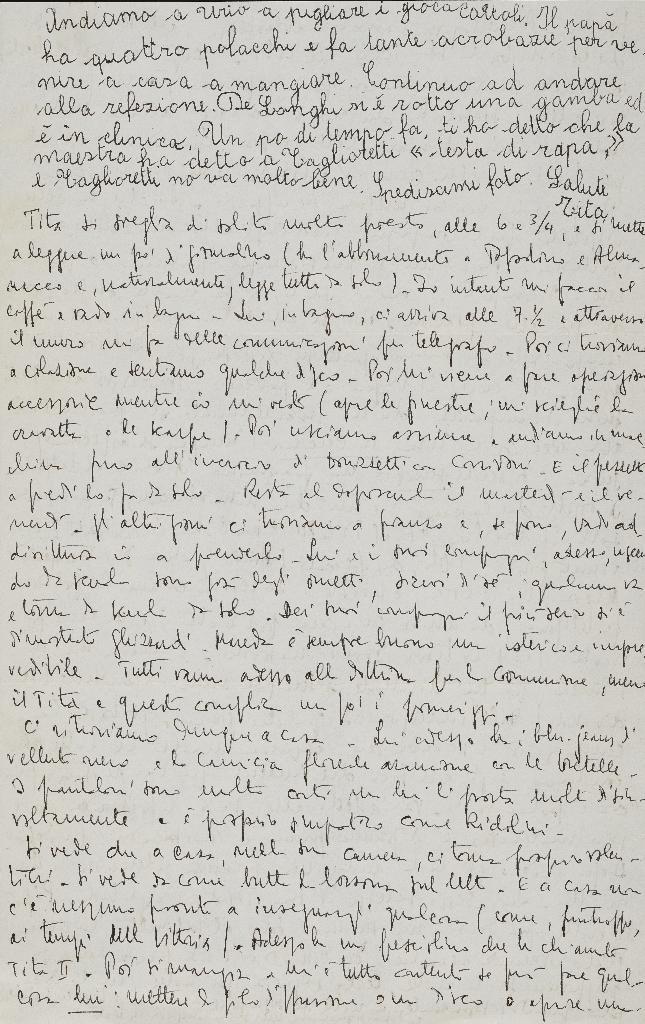 Andiamo a Urio a pigliare i giocattoli. Il papà
ha quattro polacchi e fa tante acrobazie per ve-
nire a casa a mangiare. Continuo ad andare
alla refezione. De Longhi si è rotto una gamba ed
è in clinica. Un po di tempo fa, ti ho detto che la
maestra ha detto a Taglioretti « testa di rapa, »
e Taglioretti no va molto bene. Spediscami foto. Saluti
Tita
Tita si sveglia di solito molto presto, alle 6 e 3/4, e si mette
a leggere un po' il giornalino (ha l'abbonamento a Topolino e Alma-
nacco e, naturalmente, legge tutto da solo). Io intanto mi faccio il
caffè e vado in bagno. Lui, in bagno, ci arriva alle 7.1/2 e attraverso
il muro mi fa delle comunicazioni per telegrafo. Poi ci troviamo
a colazione e sentiamo qualche disco. Poi lui viene a fare operazioni
accessorie mentre io mi vesto (apre le finestre, mi sceglie la
cravatta e le scarpe). Poi usciamo assieme e andiamo in mac-
china fino all'incrocio di Donizetti con Corridoni. E il pezzetto
a piedi lo fa da solo. Resta al doposcuola il martedì e il ve-
nerdì. Gli altri giorni ci troviamo a pranzo e, se posso, vado ad-
dirittura io a prenderlo. Lui e i suoi compagni, adesso, uscen-
do da scuola sono già degli ometti, sicuri di sé; qualcuno va
e torna da scuola da solo. Dei suoi compagni il più serio si è
dimostrato Ghizzardi. è sempre buono ma isterico e impre-
vedibile. Tutti vanno adesso alla dottrina per la Comunione, meno
il Tita e questo complica un po' i pomeriggi.
Ci ritroviamo dunque a casa. Lui adesso ha i blu-jeans di
velluto nero e la camicia floreale arancione con le bretelle.
I pantaloni sono molto corti ma lui li porta molto disin-
voltamente e è proprio simpatico come Ridolini.
Si vede che a casa, nella sua camera, ci torna proprio volen-
tieri. Si vede da come butta la borsona sul letto. E a casa non
c'è nessuno pronto a insegnargli qualcosa (come, purtroppo,
ai tempi della Vittoria). Adesso ha un pesciolino che ha chiamato
Tita II. Poi si mangia e lui è tutto contento se può fare qual-
cosa lui: mettere il filo diffusione o un disco o aprire una